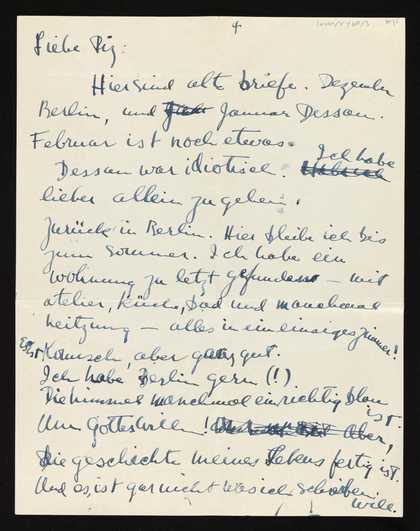 Liebe Piz:
Hier sind alte briefe. Dezember
Berlin, und Januar Dessau.
Februar ist noch etwas.
Dessau war idiotisch. Ich habe
lieber allein zu gehen.
Zurück in Berlin. Hier bleibe ich bis
zum Sommer. Ich habe ein
wohnung zu letzt gefunden — mit
atelier, küche, bad und manchmal
heitzung — alles in ein einziges zimmer!
Es ist Komisch, aber ganz gut.
Ich habe Berlin gern (!)
Die himmel manchmal ein richtig blau ist.
Um Gottes willen! Aber,
die geschichte meines lebens fertig ist.
Und es ist gar nicht was ich schreiben
will.